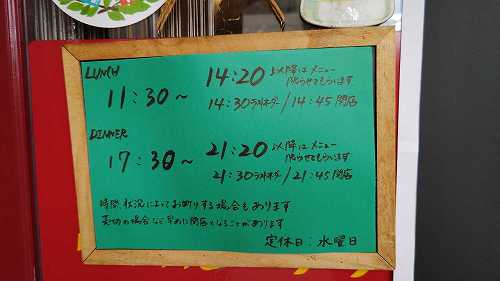 LUNCH
11:30～
14:20 以降はメニュー
限らせてもらいます
14:30ラストオーダー/14:45閉店
DINNER
17:30～
21:20 以降はメニュー
限らせてもらいます
21:30ラストオーダー/21:45閉店
時間、状況によってお断りする場合もあります
売切の場合など早めに閉店となることがあります
定休日:水曜日